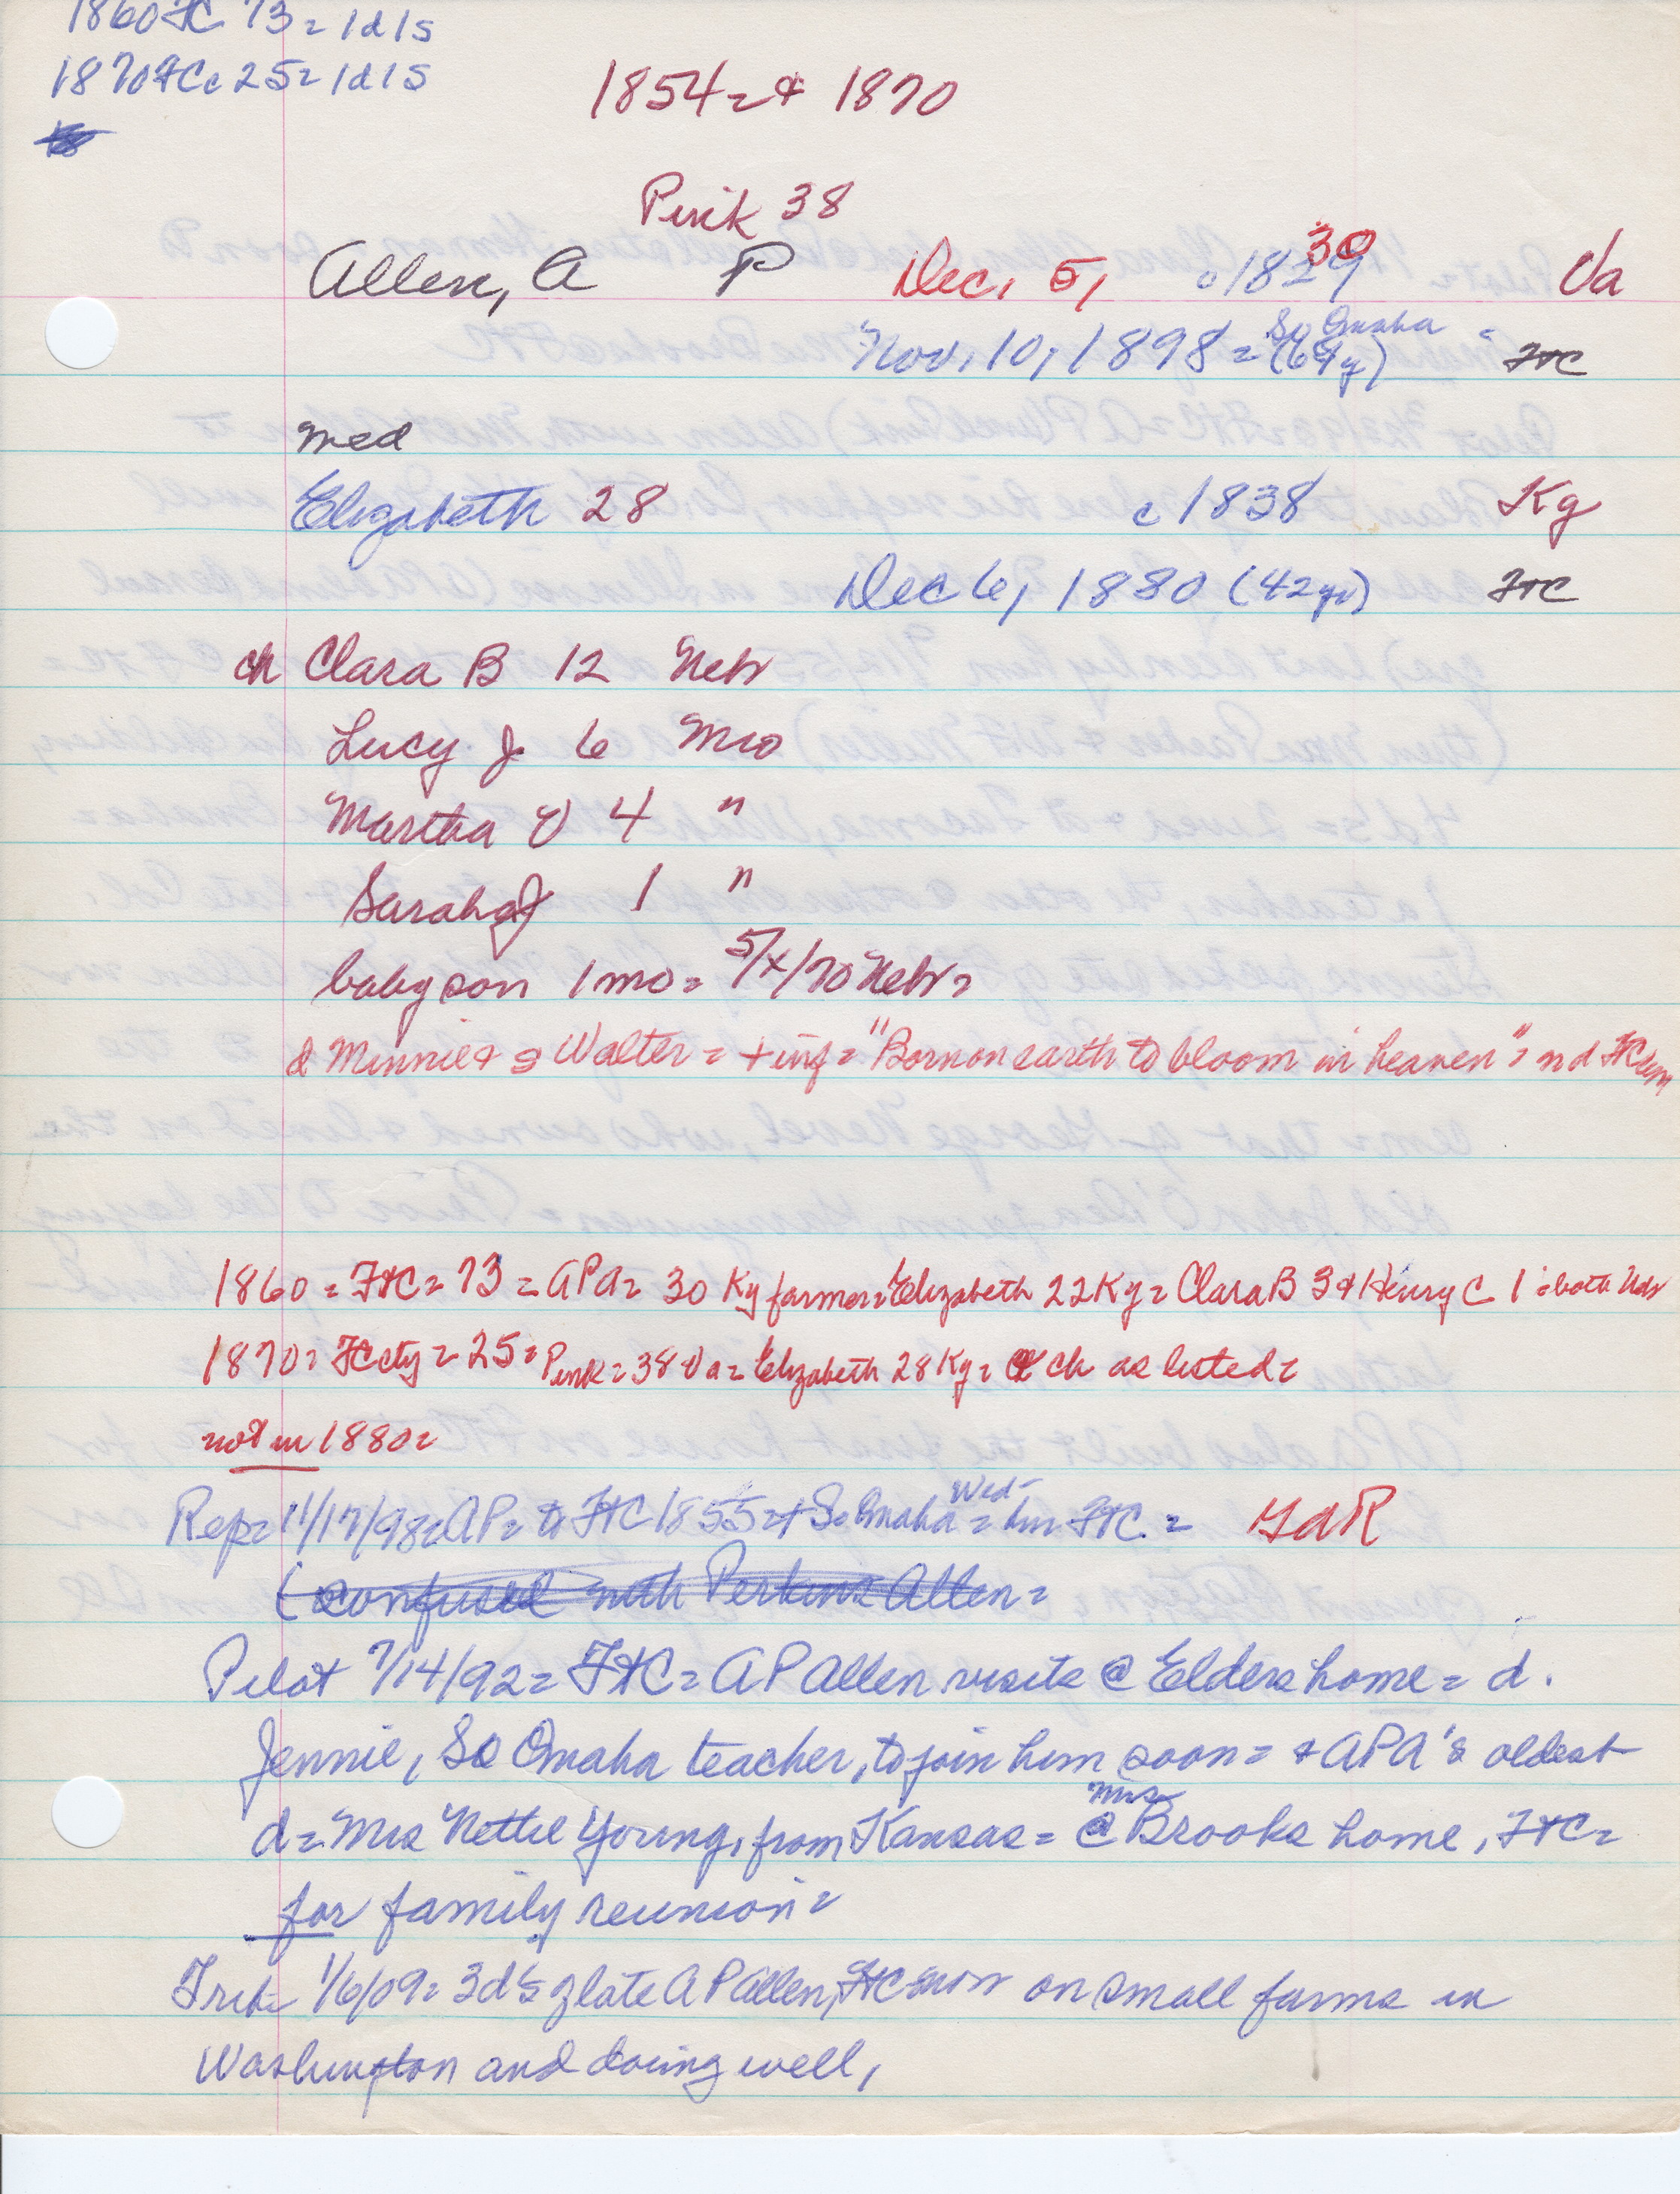 1860 FtC 73 = 1d 1s
1870 FtC c 25 = 1d 1s
1854 = & 1870
Pink 38
Allen, A P Dec, 5, c 1829 30 Va
Nov, 10, 1898 = (69y) So Omaha FtC
med
Elizabeth 28 c 1838 Ky
Dec 6, 1880 (42 yr) FtC
ch Clara B 12 Nebr
Lucy J 6 Mo
Martha V 4 "
Sarah J 1 "
baby son 1 mo = 5/x/70 Nebr =
d Minnie & s Walter = + inf = "Born on earth to bloom in heaven" = nd FtC cem
1860 = FtC = 73 = APA = 30 Ky farmer = Elizabeth 22 Ky = Clara B 3 & Henry C 1 = both Neb
1870 = FC cty = 25 = Pink = 38 Va = Elizabeth 28 Ky = & ch as listed =
not in 1880 =
Rep = 11/17/98 = AP = to FtC 1855 = & So Omaha Wed = bur FtC = GAR
(confused with Perkins Allen =
Pilot 7/14/92 = FtC = AP Allen visits @ Elders home = d.
Jennie, So Omaha teacher, to join him soon = & APA's oldest
d = Mrs Nettie Young, from Kansas = @ Mrs Brooks home, FtC =
for family reunion =
Trib = 1/6/09 = 3 d's of late A P Allen, FtC now on small farms in
Washington and doing well,